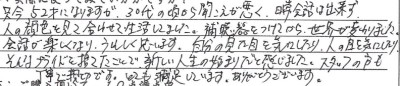 只今52才になりますが、30代の頃から聞こえが悪く、日時会話は出来ず
人の顔色を見て合わせて生活してました。補聴器をつけてから、世界が変わりました。
会話が楽しくなり、うれしく思います。自分の見た目を気にしたり、人の目を気にしたり、
それよりプライドを捨てたことで新しい人生の始まりだと感じました。スタッフの方も
丁寧で親切です。いつも満足しています。ありがとうございます。